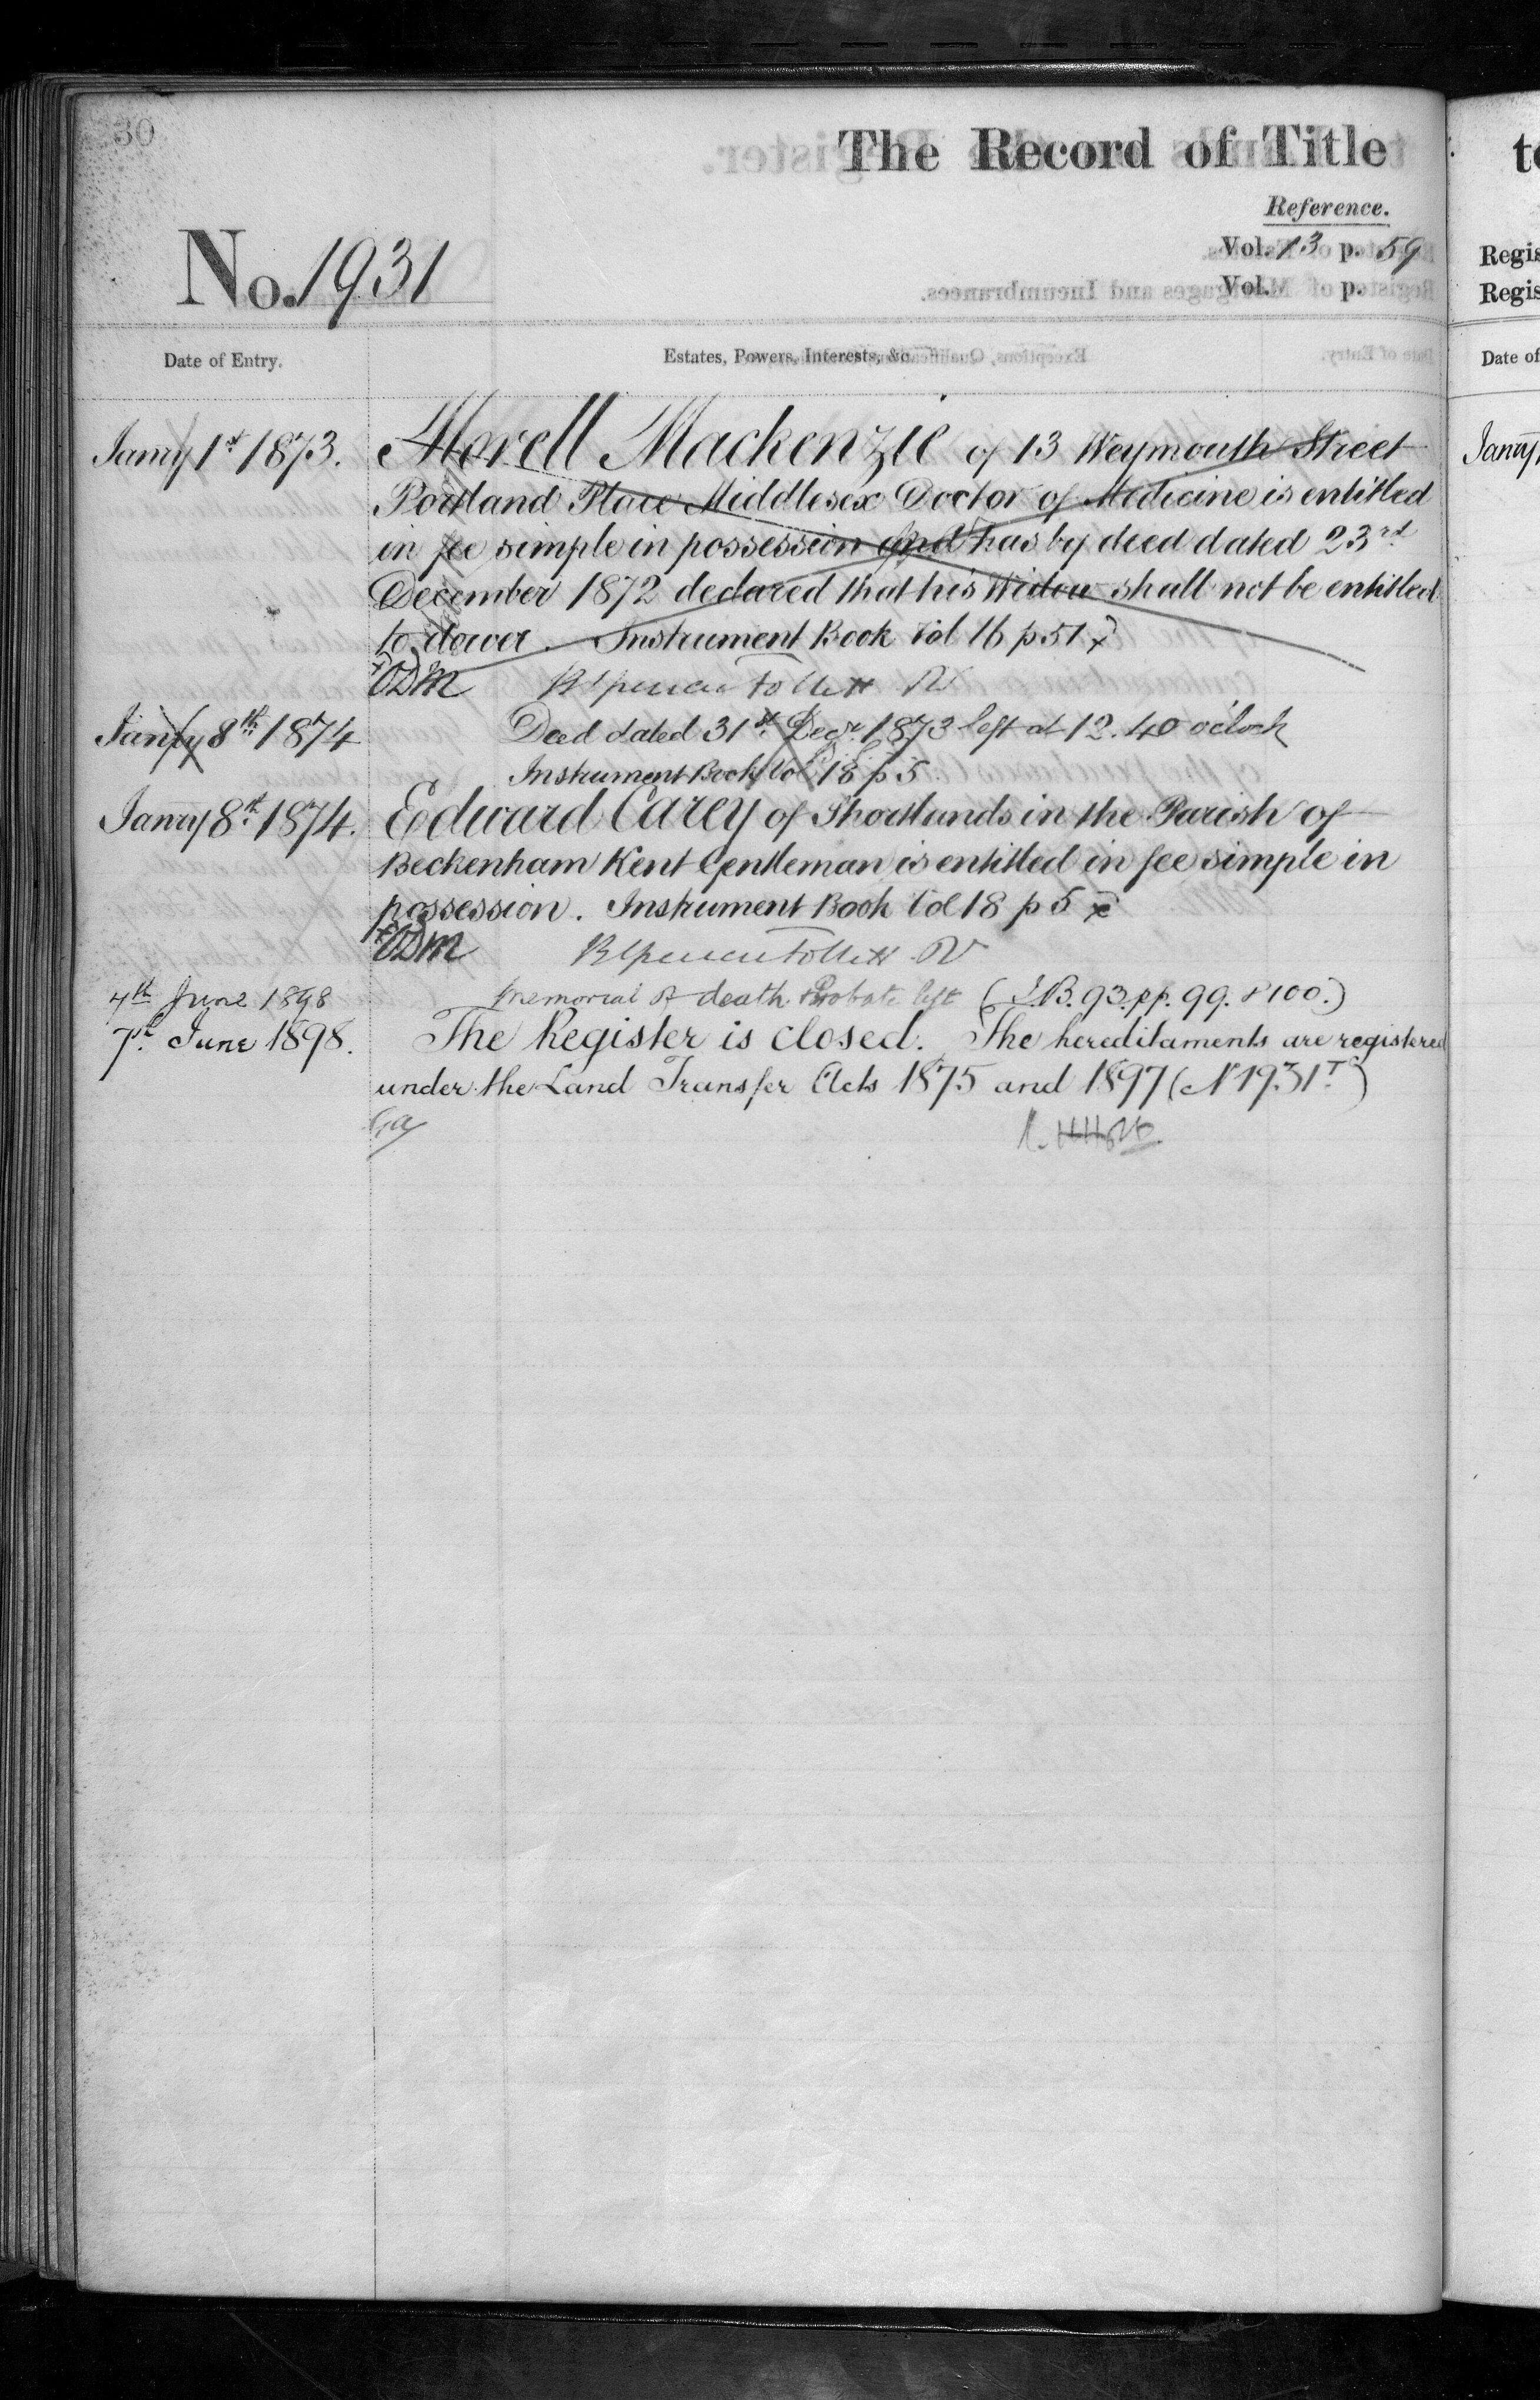 30
The Record of Title
Reference.
Vol. 13 p. 59
Vol. p.
No. 1931
Date of Entry.
Estates, Powers, Interests, &c.
Janry 1st 1873. Morell Mackenzie of 13 Weymouth Street
Portland Place Middlesex Doctor of Medicine is entitled
in fee simple in possession and has by deed dated 23rd
December 1872 declared that his Widow shall not be entitled
to dower. Instrument Book Vol 16 p 51
Janry 8th 1874 Deed dated 31st Decr. 1873 left at 12.40 o'clock
Instrument Book Vol 18 p 5
Janry 8th 1874. Edward Carey of Shortlands in the Parish of
Beckenham Kent Gentleman is entitled in fee simple in
possession. Instrument Book Vol 18 p 5
4th June 1898 Memorial of death Probate left (I.B. 93. pp. 99. & 100.)
7th June 1898. The Register is closed. The hereditaments are registered
under the Land Transfer Acts 1875 and 1897 (No 1931T)
Regis
Regis
Date of
Janry